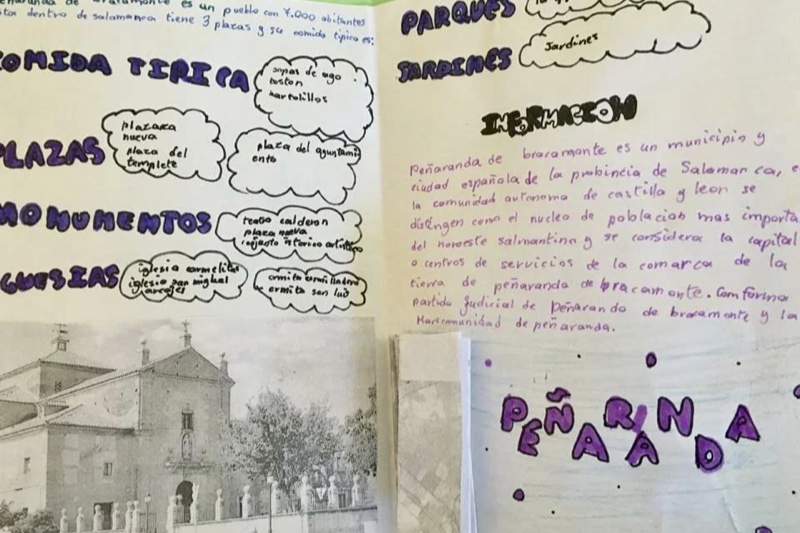 de bracamonte es un pueblo con 7.000 abitantes
dentro de salamanca tiene 3 plazas y su comida tipica es:
COMIDA TIPICA
sopas de ago
toston
bartolillos
PLAZAS
plazaza
nueva
plaza del
templete
plaza del ayuntami
ento
MONUMENTOS
teatro calderon
plaza nueva
conjunto istorico artistico
iglesia carmelitas
iglesia san miguel
arcajel
ermita san luis
PARQUES
JARDINES
Jardines
INFORMACION
Peñaranda de bracamonte es un municipio y
ciudad española de la probincia de Salamanca, e
la comunidad autonoma de castilla y leon se
distingen como el nucleo de poblacion mas importa
del noroeste salmantina y se considera la capital
o centros de servicios de la comarca de la
tierra de peñaranda de bracamonte. Conforma
partido judicial de Peñarando de bracamonte y la
Mancomunidad de peñaranda.
PEÑARANDA